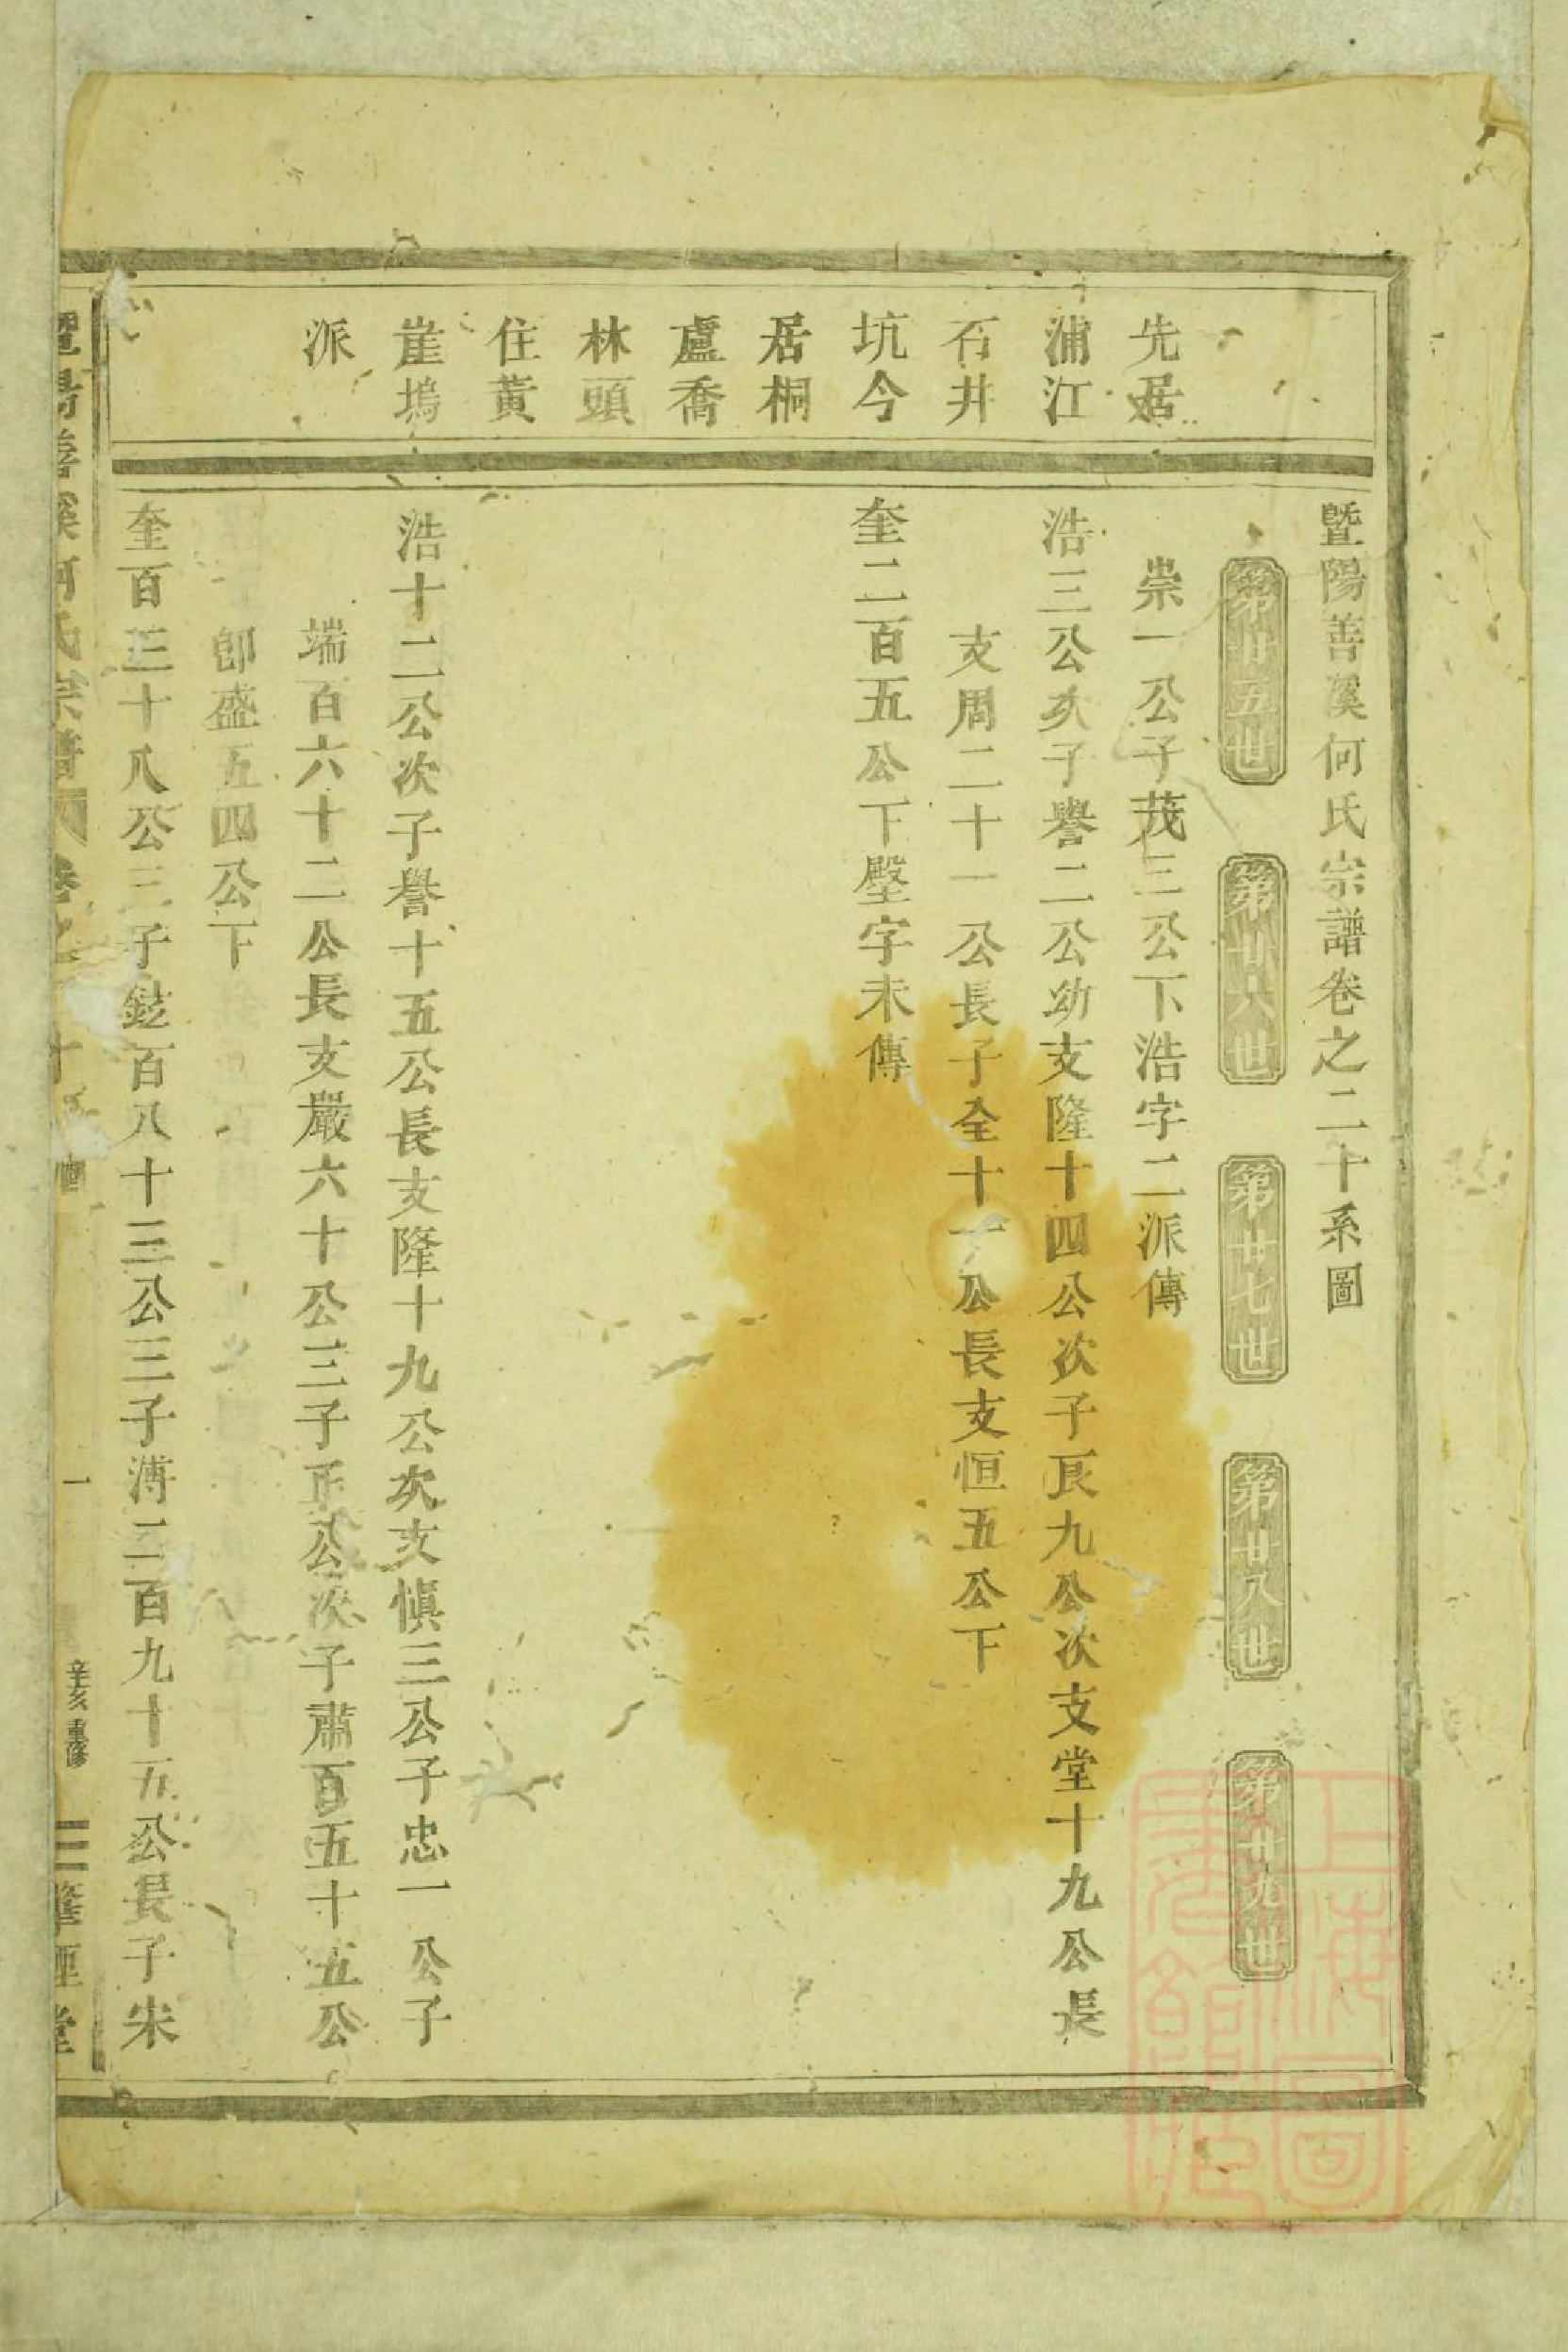 暨陽善溪何氏宗譜卷之二十系圖
第廿五世
第廿六世
第廿七世
第廿八世
第廿九世
先居
浦江
石井
坑今
居桐
盧喬
林頭
住黃
崖塢
派
崇一公子茂三公下浩字二派傳
浩三公次子譽二公幼支隆十四公次子艮九公次支堂十九公長
支周二十一公長子全十一公長支恒五公下
奎二百五公下壂字未傳
浩十二公次子譽十五公長支隆十九公次支愼三公子忠一公子
端百六十二公長支嚴六十公三子正公次子肅百五十五公
卽盛五四公下
奎百三十八公三子鉉百八十三公三子溥二百九十五公長子宋
暨陽善溪何氏宗譜
卷之二十
一
辛亥重修
上海圖書館藏